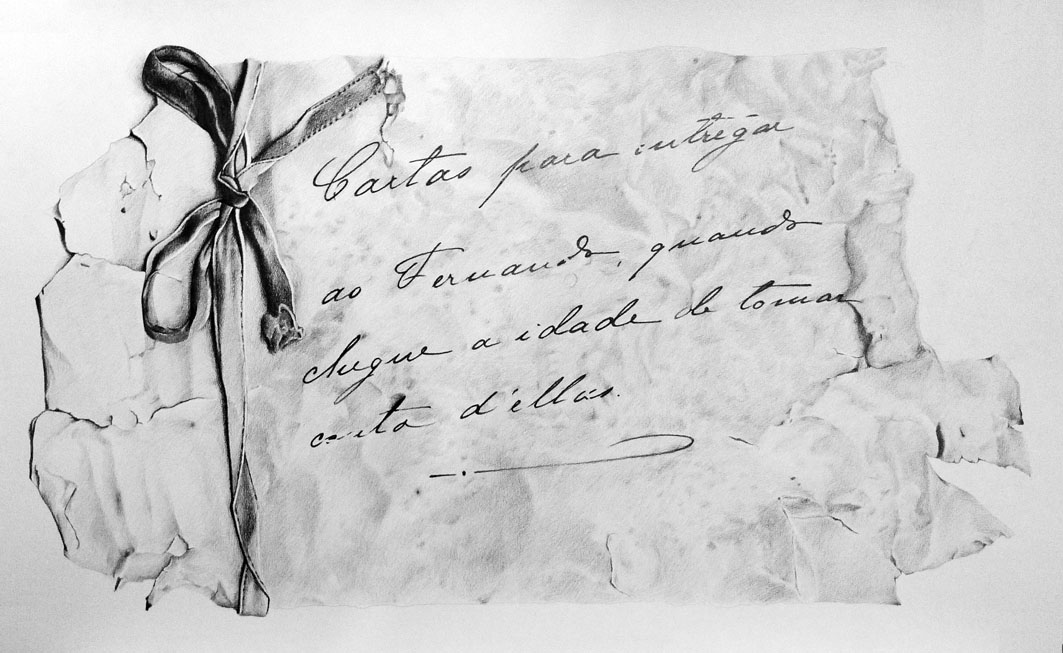 Cartas para entregar
ao Fernando, quando
chegue a idade de tomar
conta d'ellas.